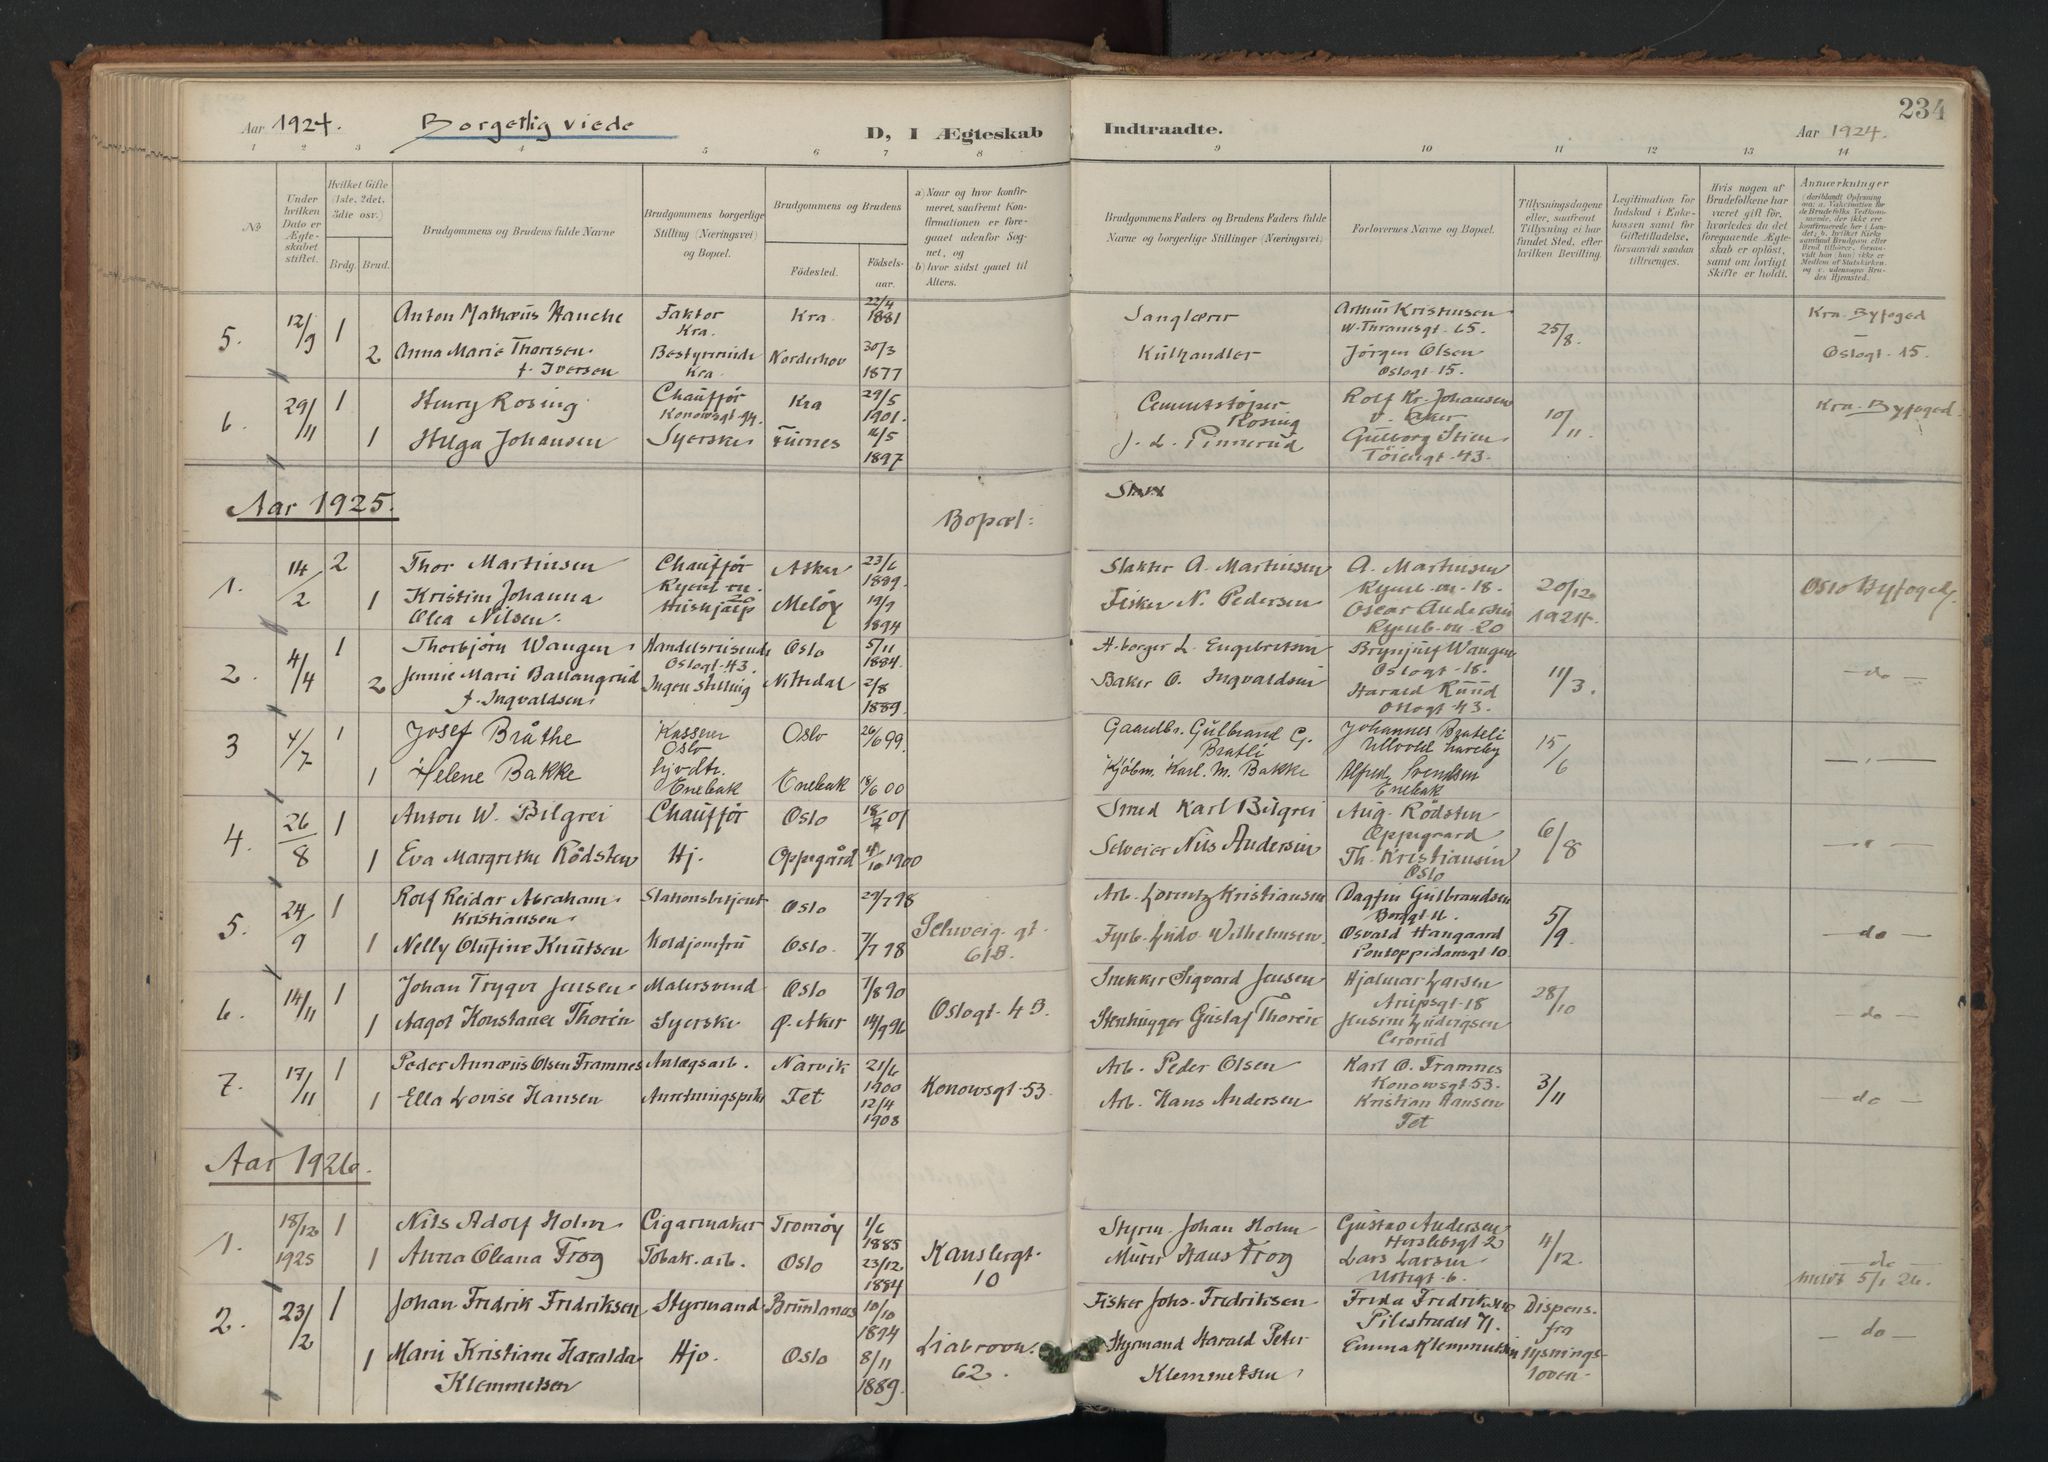 234
Aar 1924. Borgerlig viede D, I Ægteskab Indtraadte. Aar 1924.
1 2 3 4 5 6 7 8 9 10 11 12 13 14
No
Under hvilken Dato er Ægteskabet stiftet.
Hvilket Gifte (1ste, 2det, 3die osv.)
Brdg. Brud.
Brudgommens og Brudens fulde Navne
Brudgommens borgerlige Stilling (Næringsvei) og Bopæl.
Brudgommens og Brudens
Fødested. Fødselsaar.
a) Naar og hvor konfirmeret, saafremt Konfirmationen er foregaaet udenfor Sognet, og
b) hvor sidst gaaet til Alters.
Brudgommens Faders og Brudens Faders fulde Navne og borgerlige Stillinger (Næringsvei)
Forlovernes Navne og Bopæl.
Tillysningsdagene eller, saafremt Tillysning ei har fundet Sted, efter hvilken Bevilling.
Legitimation for Indskud i Enkekassen samt for Giftetilladelse, forsaavidt saadan tiltrænges.
Hvis nogen af Brudefolkene har været gift før, hvorledes da det foregaaende Ægteskab er opløst, samt om lovligt Skifte er holdt.
Anmærkninger
5. 12/9 1 Anton Mathæus Hanche Faktor Kra. Kra 22/4 1881 Sanglærer Arthur Kristensen W. Thranesgt. 65. 25/8. Kra. Byfoged
2 Anna Marie Thoresen f. Iversen Bestyrerinde Kra Norderhov 30/3 1877 Kulhandler Jørgen Olsen Oslogt. 15. Oslogt. 15.
6. 29/11 1 Henry Rosing Chauffør Konowsgt. Kra 29/5 1901. Cementstøper Rosing Rolf Kr. Johansen v. Aker 10/11 Kra. Byfoged.
1 Helga Johansen Syerske Furnes 1897 J. L. Pinnerud Gulborg Stien Töiengt. 43.
Aar 1925. Bopæl:
1. 14/2 2 Thor Martinsen Chauffør Asker 23/6 1889. Slakter A. Martinsen A. Martinsen 18. 20/12 1924. Oslo Byfoged.
1 Kristine Johanna Olea Nilsen. Hushjælp Meløy 19/7 1894 Fisker N. Pedersen Oscar Andersen 20
2. 4/4 1 Thorbjørn Wangen Handelsreisende Oslogt. 43. Oslo 5/11 1884. H.borger L. Engebretsen Brynjulf Wangen Oslogt. 18. 11/3. — do —
2 Jennie Marie Ballangrud f. Ingvaldsen Ingen stilling Nittedal 2/8 1889. Baker O. Ingvaldsen Harald Ruud Oslogt. 43.
3 4/7 1 Josef Bråthe Kasserer Oslo Oslo 26/6 99 Gaardbr. Gulbrand G. Bratli Johannes Brateli 15/6 — " —
1 Helene Bakke Enebak Enebak 18/6 00 Kjøbm. Karl. M. Bakke Alfred Svendsen Enebak
4. 26/8 1 Anton W. Bilgrei Chauffør Oslo 01 Smed Karl Bilgrei Aug. Rödsten Oppegaard 6/8 — " —
1 Eva Margrethe Rödsten Hj. Oppegård 1900 Selveier Nils Andersen Th. Kristiansen Oslo
5. 24/9 1 Rolf Reidar Abraham Kristiansen Stationsbetjent Oslo 29/7 98 Arb. Lorentz Kristiansen Dagfin Gulbrandsen Borggt. 11. 5/9. — do —
1 Nelly Olufine Knutsen Koldjomfru Oslo. 7/7 98 Schweig. gt. 61B. Fyrb. Ludv. Wilhelmsen. Osvald Haugaard Pontoppidansgt 10
6. 14/11 1 Johan Trygve Jensen Malersvend Oslo 7/8 90 Oslogt. 4 B. Snekker Sigvard Jensen Hjalmar Larsen Arupsgt. 18 28/10 — do —
1 Aagot Konstanse Thorén Syerske Ø. Aker 14/9 96 Stenhugger Gustaf Thorén Ludvigsen
7. 17/11 1 Peder Annæus Olsen Framnes Anlægsarb. Narvik 21/6 1900 Konowsgt. 53. Arb. Peder Olsen Karl O. Framnes Konowsgt. 53. 3/11 — do —
1 Ella Lovise Hansen Anretningspike Fet 12/4 1908 Arb. Hans Andersen Kristian Hansen Fet
Aar 1926.
1. 18/12 1925 1 Nils Adolf Holm Cigarmaker Tromøy 1/6 1885 Kanslergt. 10 Styrm. Johan Holm Gustav Andersen Herslebsgt 2 4/12. do
1 Anna Oleana Frog Tobak. arb. Oslo 23/12 1884 Murer Hans Frog Lars Larsen Urtegt. 6. meldt 5/1 26.
2. 23/2 1 Johan Fredrik Fredriksen Styrmand Brunlanes 10/10 1894 Liabrovn. 62. Fisker Johs. Fredriksen Frida Fredriksen Pilestrædet 71. Dispens. fra lysnings-loven. — do —
1 Marie Kristiane Haralda Klemmetsen Hjv. Oslo 8/11 1889. Styrmand Harald Peter Klemmetsen Emma Klemmetsen